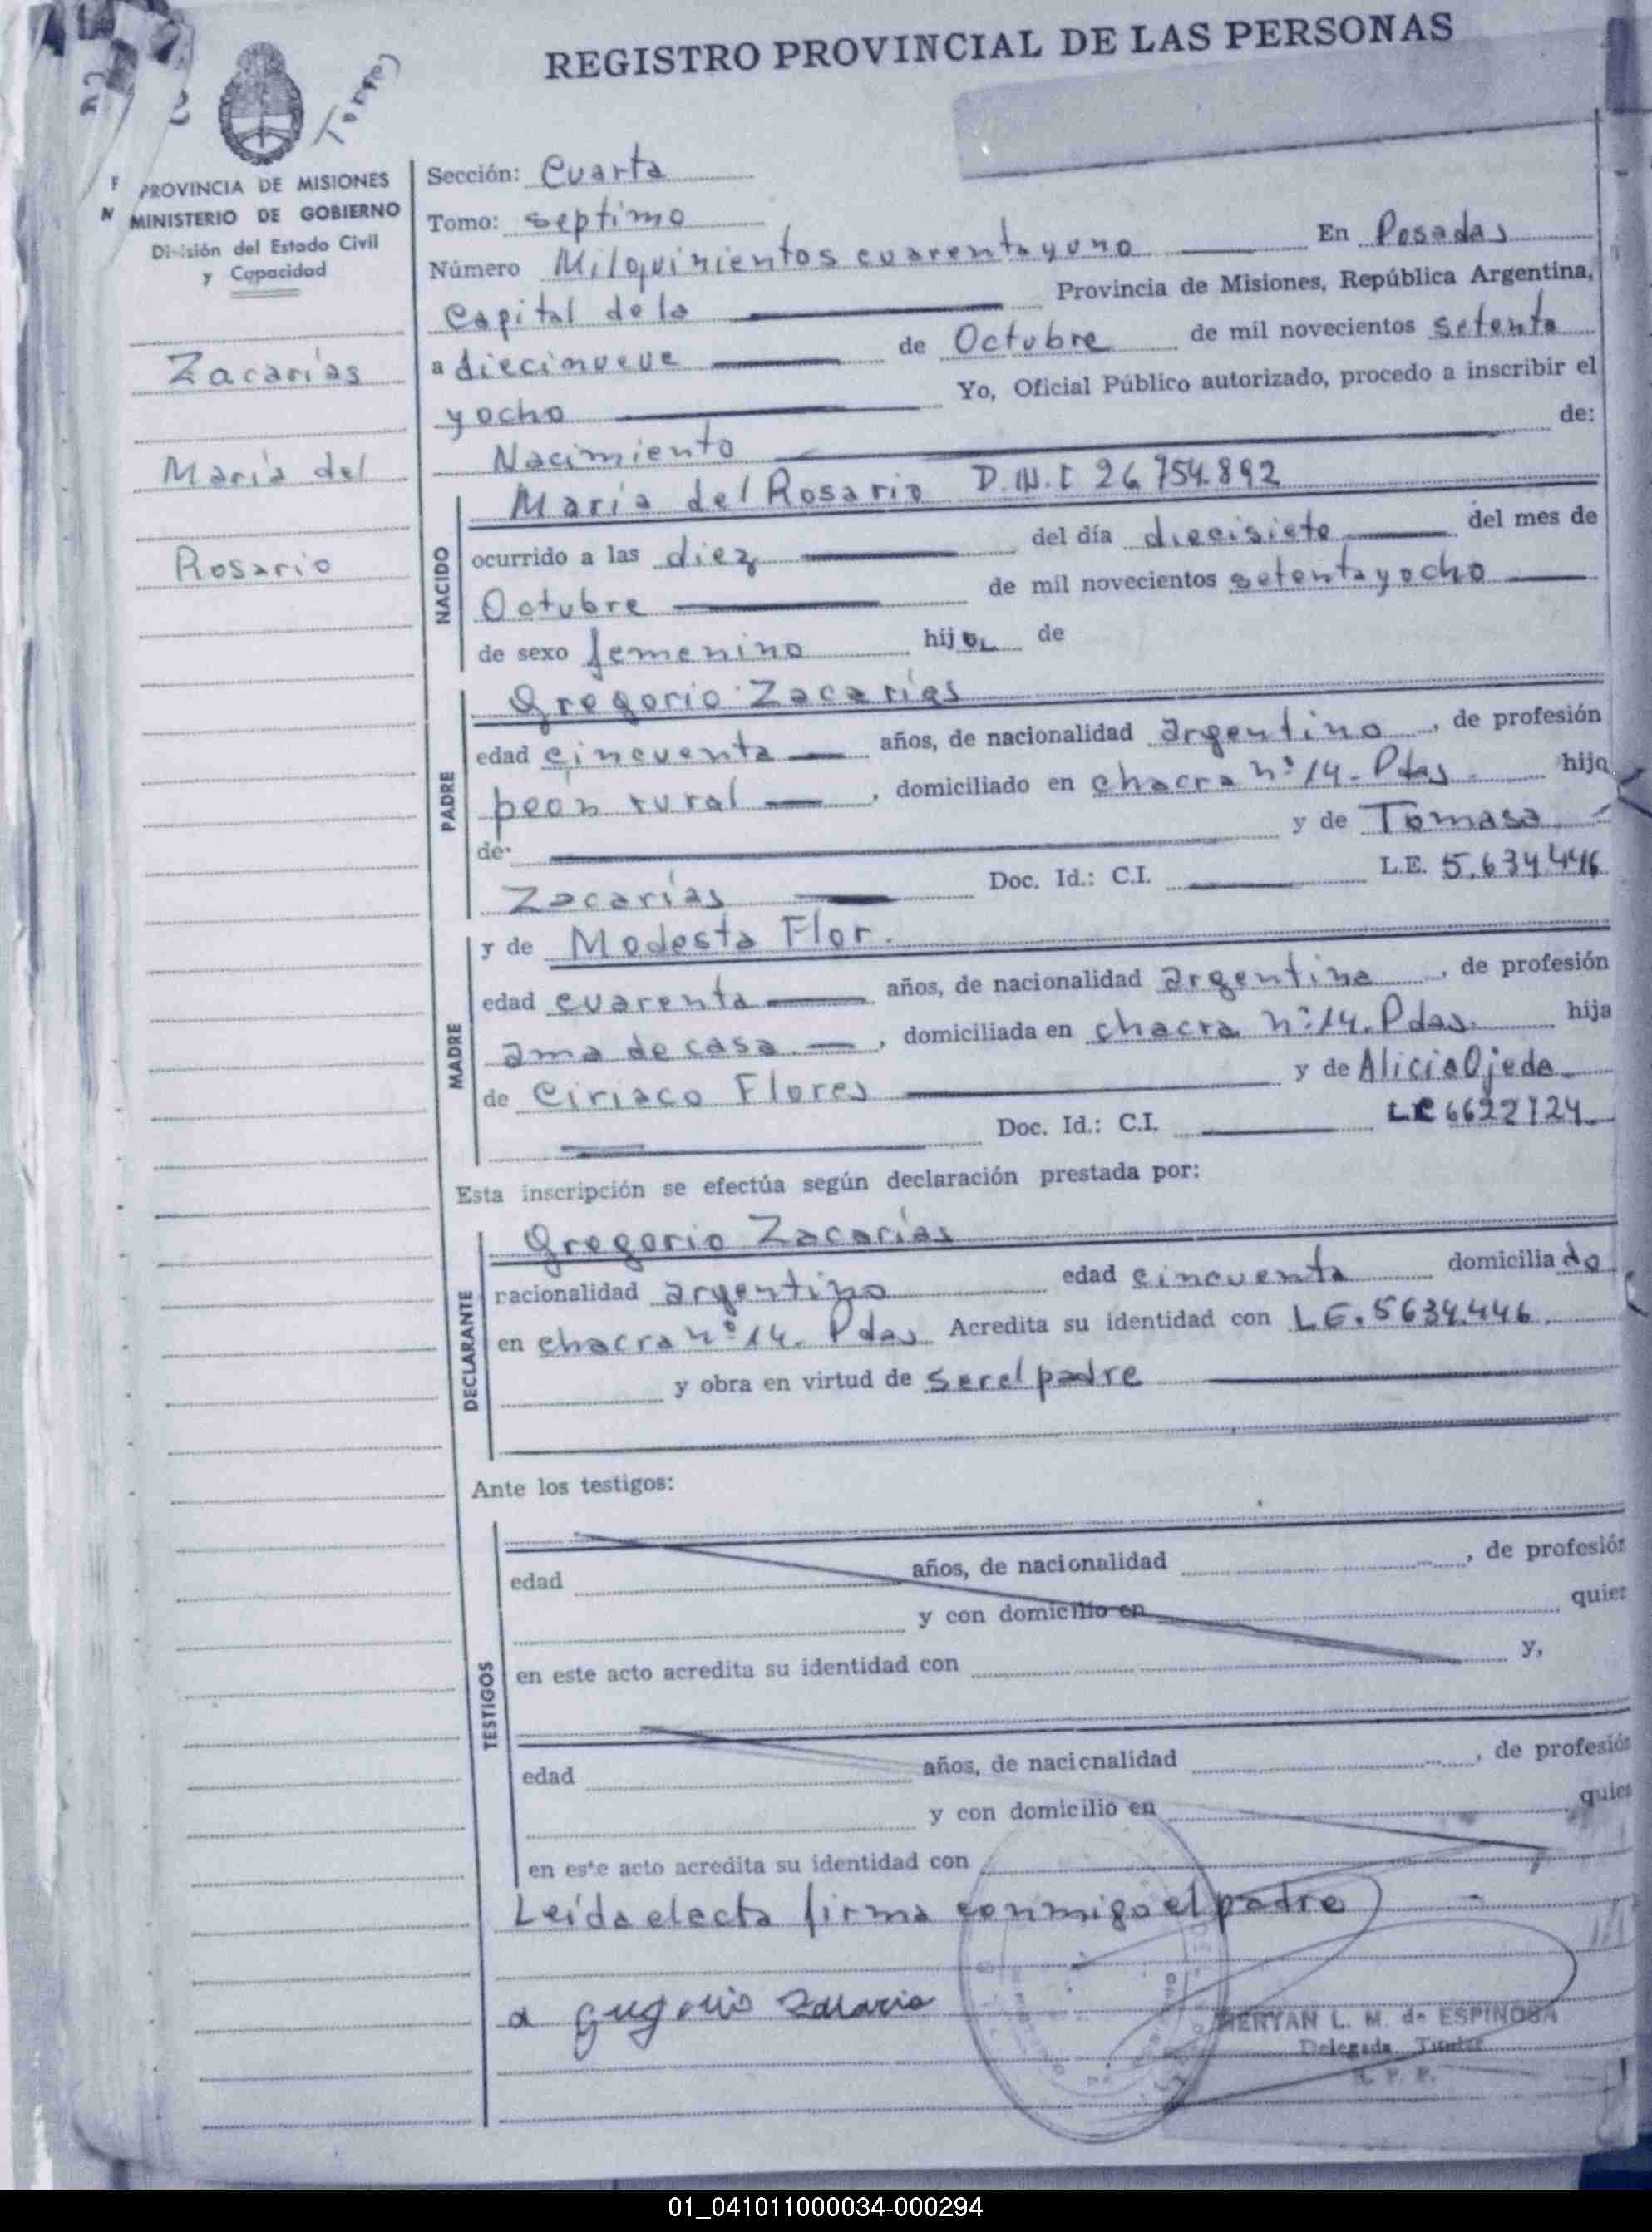 REGISTRO PROVINCIAL DE LAS PERSONAS
PROVINCIA DE MISIONES
MINISTERIO DE GOBIERNO
División del Estado Civil
y Capacidad
Zacarías
María del
Rosario
Sección: Cuarta
Tomo: septimo
Número Milquinientos cuarenta y uno En Posadas
Capital de la Provincia de Misiones, República Argentina,
a diecinueve de Octubre de mil novecientos setenta
y ocho Yo, Oficial Público autorizado, procedo a inscribir el
Nacimiento de:
NACIDO
María del Rosario D.N.I 26.754.892
ocurrido a las diez del día diecisiete del mes de
Octubre de mil novecientos setenta y ocho
de sexo femenino hija de
PADRE
Gregorio Zacarías
edad cincuenta años, de nacionalidad argentino, de profesión
peón rural, domiciliado en chacra nº 14. Pdas. hijo
de y de Tomasa
Zacarías Doc. Id.: C.I. L.E. 5.634.446
MADRE
y de Modesta Flor.
edad cuarenta años, de nacionalidad argentina, de profesión
ama de casa, domiciliada en chacra nº 14. Pdas. hija
de Ciriaco Flores y de Alicia Ojeda
Doc. Id.: C.I. LC 6622724
Esta inscripción se efectúa según declaración prestada por:
DECLARANTE
Gregorio Zacarías
nacionalidad argentino edad cincuenta domiciliado
en chacra nº 14. Pdas Acredita su identidad con L.E. 5634.446
y obra en virtud de ser el padre
Ante los testigos:
TESTIGOS
edad años, de nacionalidad , de profesión
y con domicilio en quien
en este acto acredita su identidad con y,
edad años, de nacionalidad , de profesión
y con domicilio en quien
en este acto acredita su identidad con
Leída el acta firma conmigo el padre
Gregorio Zacaria
MERYAN L. M. de ESPINOSA
Delegada Titular
R. P. P.
01_041011000034-000294